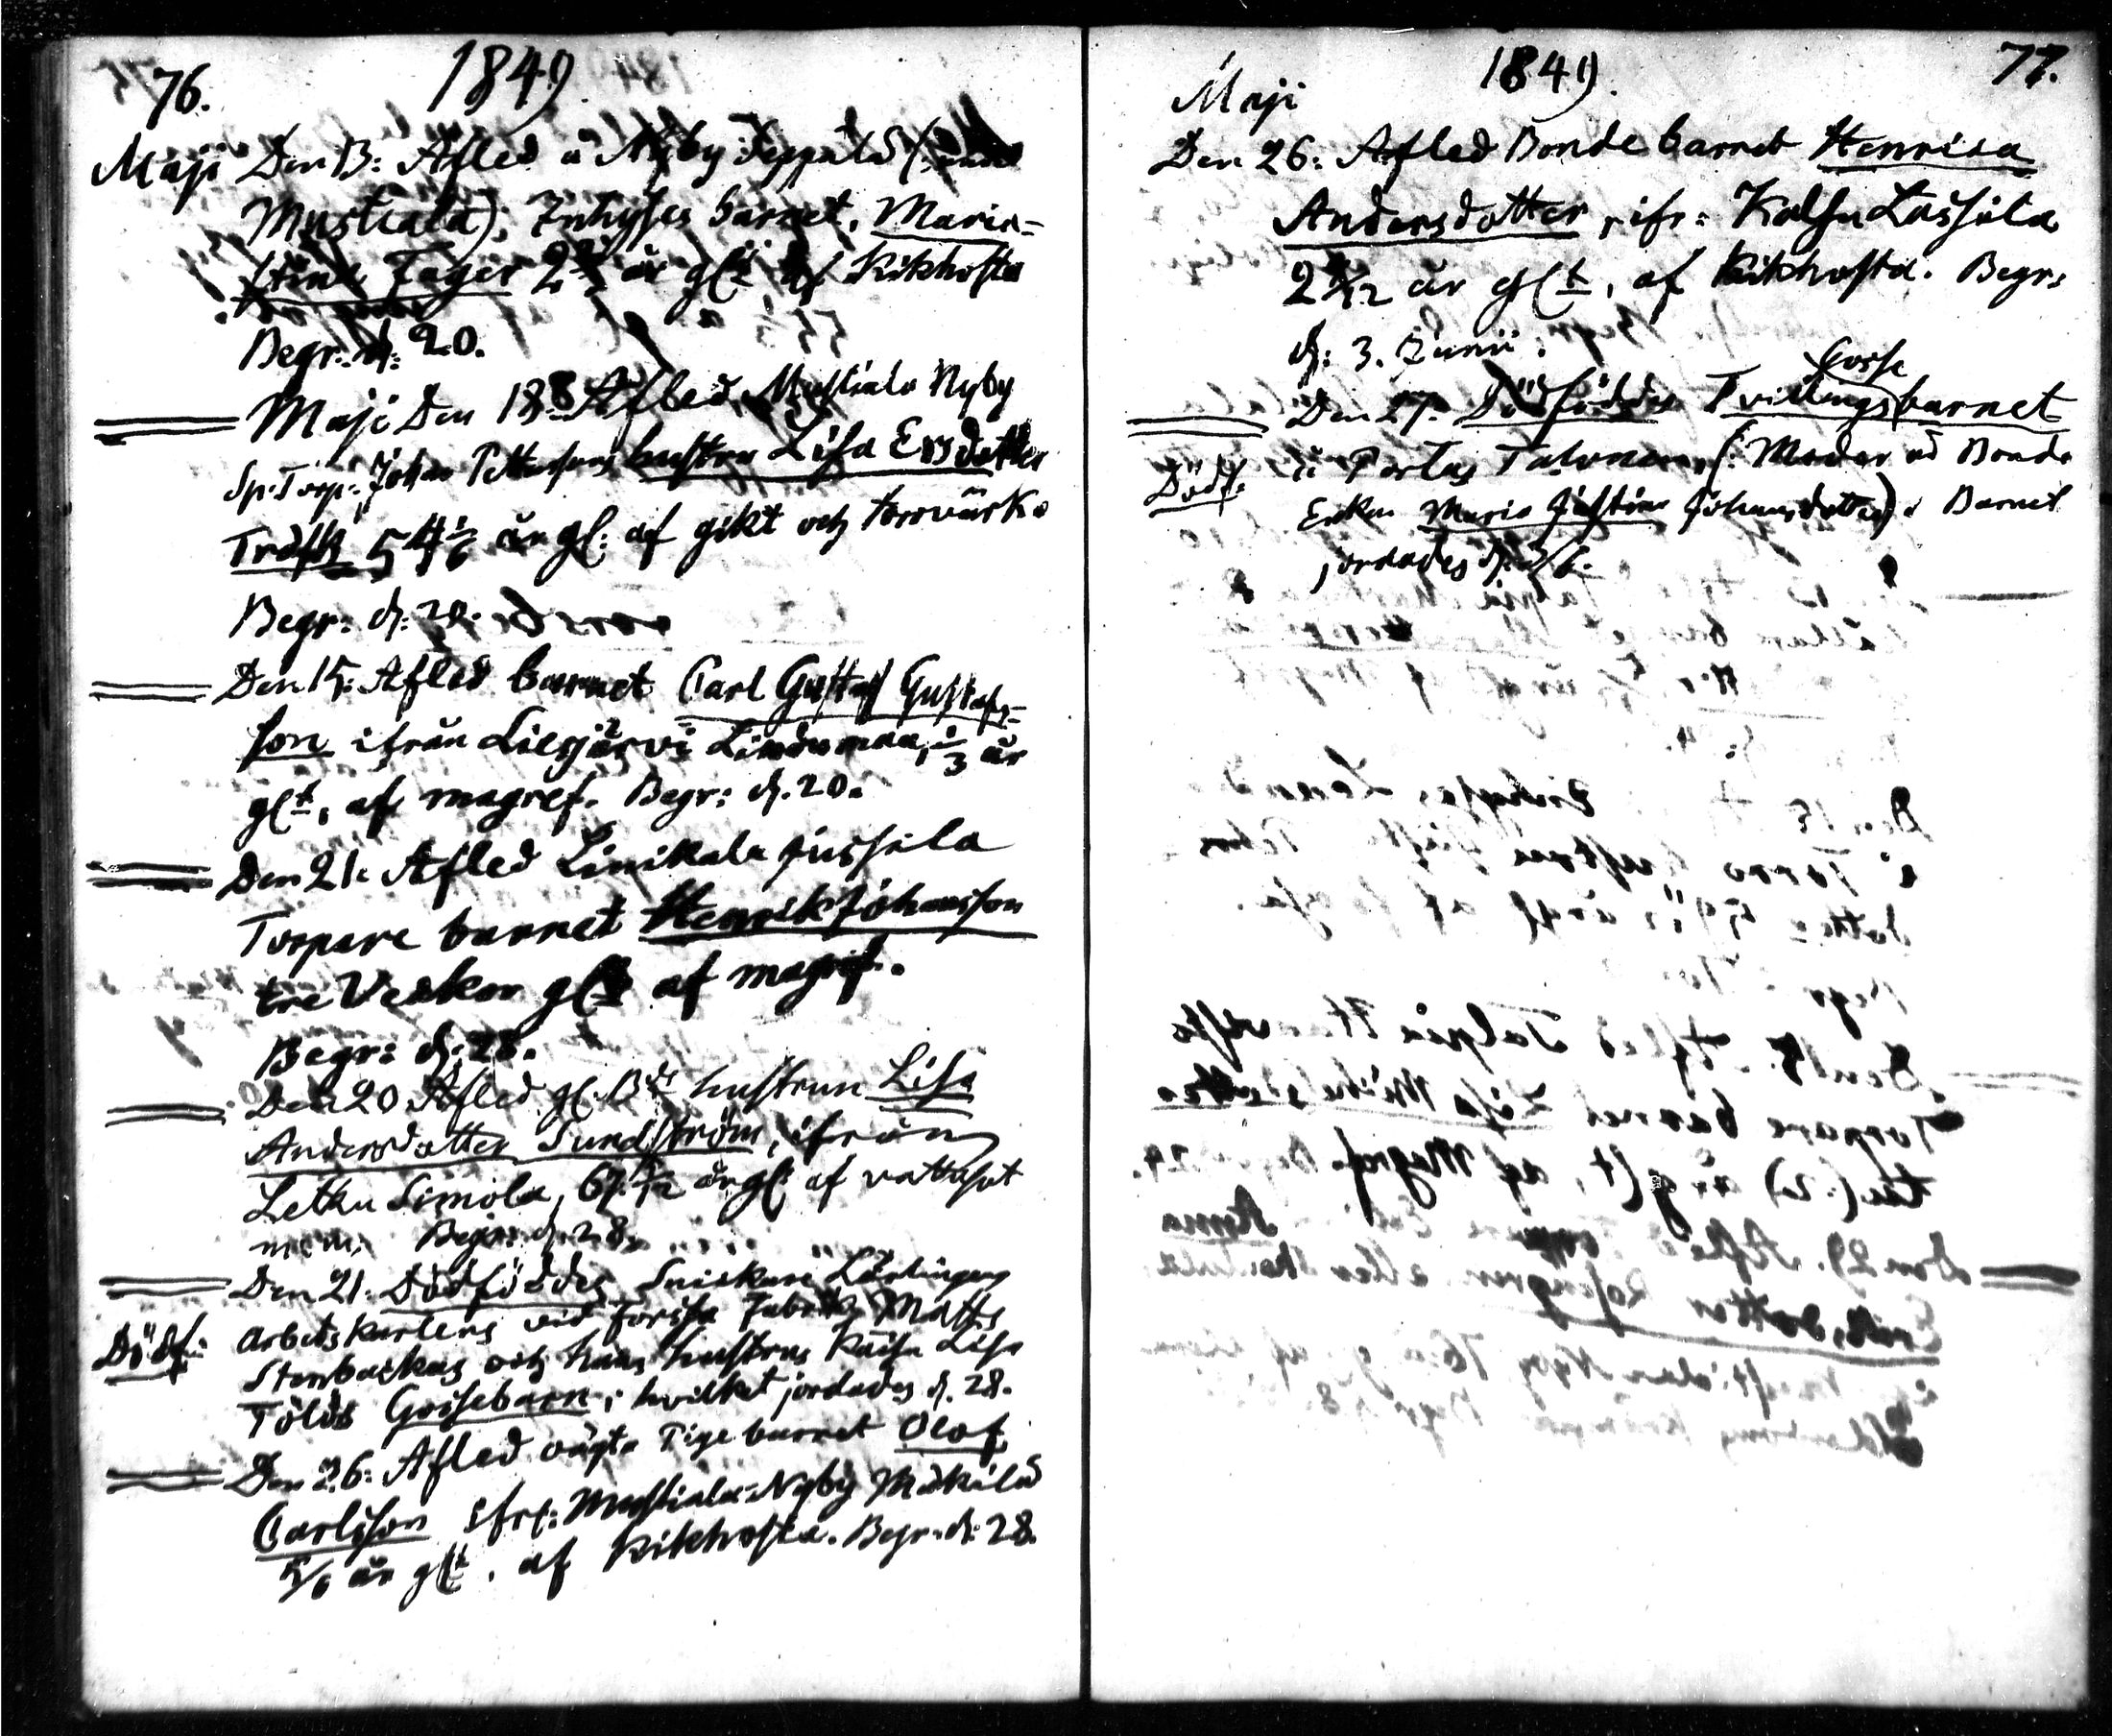 76. 1849.
Maji Den 13: Afled å Nyby Seppälä (under
Mustiala), Inhyses barnet, Maria-
Stina Fager 2 år glt af Kikhosta
Begr. d: 20.
Maji Den 18 Afled Mustiala Nyby
Sp. Torp: Johan Pettersons hustru Lisa Ersdotter
Träsk 54 1/6 år gl: af gikt och torrvärk
Begr: d: 20.
Den 15: Afled barnet Carl Gustaf Gustafs-
son ifrån Liesjärvi Lindumaa, 1/3 år
glt, af magref. Begr: d. 20.
Den 21. Afled Linikkala Jussila
Torpare barnet Henrik Johansson
tre Veckor glt af magref.
Begr: d: 28.
Den 20 Afled gl. Bde hustrun Lisa
Andersdotter Sundström, ifrån
Letku Simola, 67 /12 år gl: af vattusot
m.m. Begr: d. 28.
Den 21. Dödföddes Snickare Lärlingens
Dödf: arbetskarlens vid Forssa Fabrik Matts
Stenbackas och hans hustrus Kaisa Lisa
Tölös Gossebarn; hvilket jordades d. 28.
Den 26: Afled oägta Pigebarnet Olof
Carlsson ifr: Mustiala-Nyby Mäkilä
5/6 år glt. af Kikhosta. Begr. d: 28.
1849. 77.
Maji
Den 26: Afled Bonde barnet Henrica
Andersdotter, ifr: Kalsu Lassila
2 /12 år glt, af Kikhosta. Begr:
d: 3. Junii.
Gosse
Den 27. Dödföddes Tvillingsbarnet
Dödf: å Portas Talonen, (: Moder är Bonde
Enkan Maria Justina Johansdotter). Barnet
jordades d. 3/6.